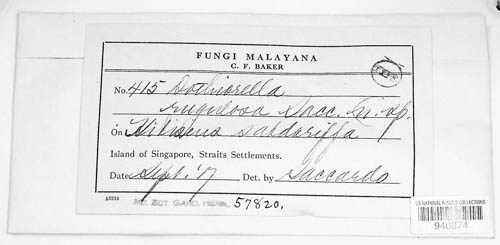 FUNGI MALAYANA
C. F. BAKER
No. 415 Dothiorella
rugulosa Sacc. n. sp.
On Hibiscus sabdariffa
Island of Singapore, Straits Settlements.
Date Sept. '17 Det. by Saccardo
MO. BOT. GARD. HERB. 57820.
US NATIONAL FUNGUS COLLECTIONS
940874